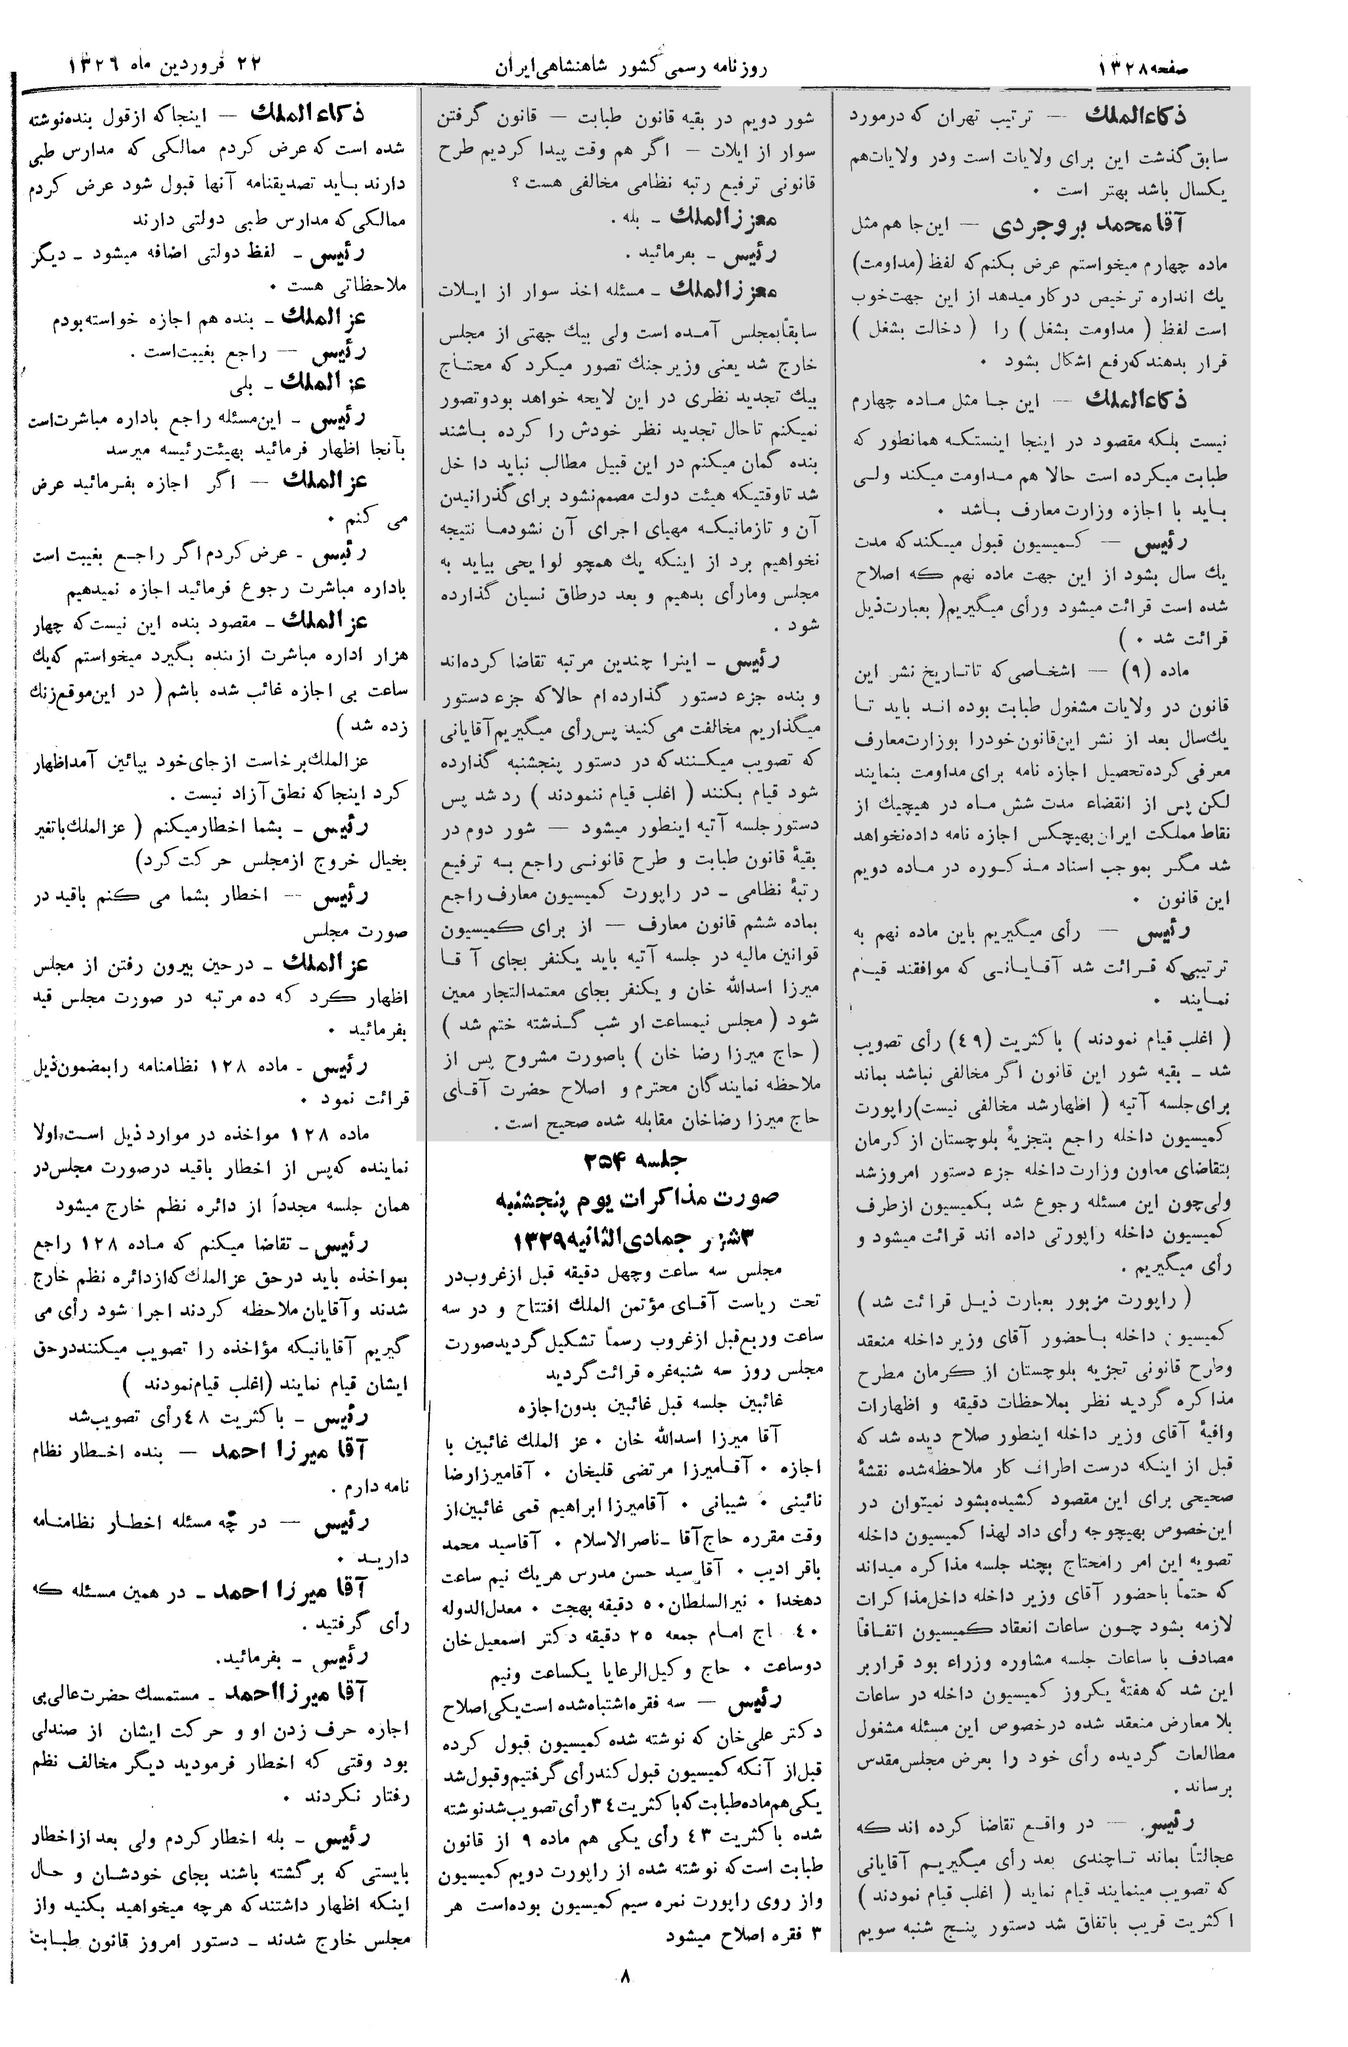 صفحه ۱۳۲۸
روزنامه رسمی کشور شاهنشاهی ایران
۲۲ فروردین ماه ۱۳۲۶
ذکاءالملك — ترتیب تهران که درمورد
سابق گذشت این برای ولایات است ودر ولایات‌هم
یکسال باشد بهتر است ۰
آقا محمد بروجردی — این‌جا هم مثل
ماده چهارم میخواستم عرض بکنم‌که لفظ (مداومت)
یك اندازه ترخیص درکار میدهد از این جهت‌خوب
است لفظ ( مداومت بشغل ) را ( دخالت بشغل )
قرار بدهندکه‌رفع اشکال بشود ۰
ذکاءالملك — این جا مثل ماده چهارم
نیست بلکه مقصود در اینجا اینستکه همانطور که
طبابت میکرده است حالا هم مداومت میکند ولی
باید با اجازه وزارت معارف باشد ۰
رئیس — کمیسیون قبول میکندکه مدت
یك سال بشود از این جهت ماده نهم که اصلاح
شده است قرائت میشود ورأی میگیریم( بعبارت‌ذیل
قرائت شد ۰ )
ماده (۹) — اشخاصی‌که تاتاریخ نشر این
قانون در ولایات مشغول طبابت بوده اند باید تا
یك‌سال بعد از نشر این‌قانون خودرا بوزارت‌معارف
معرفی کرده‌تحصیل اجازه نامه برای مداومت بنمایند
لکن پس از انقضاء مدت شش ماه در هیچیك از
نقاط مملکت ایران‌بهیچکس اجازه نامه داده‌نخواهد
شد مگر بموجب اسناد مذکوره در ماده دویم
این قانون ۰
رئیس — رأی میگیریم باین ماده نهم به
ترتیبی‌که قرائت شد آقایانی که موافقند قیام
نمایند ۰
( اغلب قیام نمودند ) باکثریت (٤۹) رأی تصویب
شد ـ بقیه شور این قانون اگر مخالفی نباشد بماند
برای‌جلسه آتیه ( اظهارشد مخالفی نیست)راپورت
کمیسیون داخله راجع بتجزیهٔ بلوچستان از کرمان
بتقاضای معاون وزارت داخله جزء دستور امروزشد
ولی‌چون این مسئله رجوع شد بکمیسیون ازطرف
کمیسیون داخله راپورتی داده اند قرائت میشود و
رأی میگیریم .
( راپورت مزبور بعبارت ذیل قرائت شد )
کمیسیون داخله باحضور آقای وزیر داخله منعقد
وطرح قانونی تجزیه بلوچستان از کرمان مطرح
مذاکره گردید نظر بملاحظات دقیقه و اظهارات
وافیهٔ آقای وزیر داخله اینطور صلاح دیده شد که
قبل از اینکه درست اطراف کار ملاحظه‌شده نقشهٔ
صحیحی برای این مقصود کشیده‌بشود نمیتوان در
این‌خصوص بهیچوجه رأی داد لهذا کمیسیون داخله
تصویه این امر رامحتاج بچند جلسه مذاکره میداند
که حتماً باحضور آقای وزیر داخله داخل‌مذاکرات
لازمه بشود چون ساعات انعقاد کمیسیون اتفاقاً
مصادف با ساعات جلسه مشاوره وزراء بود قراربر
این شد که هفتهٔ یکروز کمیسیون داخله در ساعات
بلا معارض منعقد شده درخصوص این مسئله مشغول
مطالعات گردیده رأی خود را بعرض مجلس‌مقدس
برساند .
رئیس — در واقع تقاضا کرده اند که
عجالتاً بماند تاچندی بعد رأی میگیریم آقایانی
که تصویب مینمایند قیام نماید ( اغلب قیام نمودند )
اکثریت قریب باتفاق شد دستور پنج شنبه سویم
شور دویم در بقیه قانون طبابت — قانون گرفتن
سوار از ایلات — اگر هم وقت پیدا کردیم طرح
قانونی ترفیع رتبه نظامی مخالفی هست ؟
معززالملك ـ بله .
رئیس ـ بفرمائید .
معززالملك ـ مسئله اخذ سوار از ایلات
سابقاًبمجلس آمده است ولی بیك جهتی از مجلس
خارج شد یعنی وزیرجنك تصور میکرد که محتاج
بیك تجدید نظری در این لایحه خواهد بودوتصور
نمیکنم تاحال تجدید نظر خودش را کرده باشند
بنده گمان میکنم در این قبیل مطالب نباید داخل
شد تاوقتیکه هیئت دولت مصمم‌نشود برای‌گذرانیدن
آن و تازمانیکه مهیای اجرای آن نشودما نتیجه
نخواهیم برد از اینکه یك همچو لوایحی بیاید به
مجلس ومارأی بدهیم و بعد درطاق نسیان گذارده
شود .
رئیس ـ اینرا چندین مرتبه تقاضا کرده‌اند
و بنده جزء دستور گذارده ام حالاکه جزء دستور
میگذاریم مخالفت می‌کنید پس‌رأی میگیریم‌آقایانی
که تصویب میکنندکه در دستور پنجشنبه گذارده
شود قیام بکنند ( اغلب قیام ننمودند ) رد شد پس
دستورجلسه آتیه اینطور میشود — شور دوم در
بقیهٔ قانون طبابت و طرح قانونی راجع به ترفیع
رتبهٔ نظامی ـ در راپورت کمیسیون معارف راجع
بماده ششم قانون معارف — از برای کمیسیون
قوانین مالیه در جلسه آتیه باید یکنفر بجای آقا
میرزا اسدالله خان و یکنفر بجای معتمدالتجار معین
شود ( مجلس نیمساعت از شب گذشته ختم شد )
( حاج میرزا رضا خان ) باصورت مشروح پس از
ملاحظه نمایندگان محترم و اصلاح حضرت آقای
حاج میرزا رضاخان مقابله شده صحیح است .
جلسه ۲۵۴
صورت مذاکرات یوم پنجشنبه
۳شهر جمادی‌الثانیه۱۳۲۹
مجلس سه ساعت وچهل دقیقه قبل ازغروب‌در
تحت ریاست آقای مؤتمن الملك افتتاح و در سه
ساعت وربع‌قبل ازغروب رسماً تشکیل‌گردیدصورت
مجلس روز سه شنبه‌غره قرائت‌گردید
غائبین جلسه قبل غائبین بدون‌اجازه
آقا میرزا اسدالله خان ۰ عز الملك غائبین با
اجازه ۰ آقامیرزا مرتضی قلیخان ۰ آقامیرزارضا
نائینی ۰ شیبانی ۰ آقامیرزا ابراهیم قمی غائبین‌از
وقت مقرره حاج‌آقا ـ‌ناصرالاسلام ۰ آقاسید محمد
باقر ادیب ۰ آقا سید حسن مدرس هریك نیم ساعت
دهخدا ۰ نیرالسلطان۵۰ دقیقه بهجت ۰ معدل‌الدوله
۴۰ حاج امام جمعه ۲۵ دقیقه دکتر اسمعیل‌خان
دوساعت ۰ حاج وکیل‌الرعایا یکساعت ونیم
رئیس — سه فقره‌اشتباه‌شده است‌یکی‌اصلاح
دکتر علی‌خان که نوشته شده‌کمیسیون قبول کرده
قبل‌از آنکه کمیسیون قبول کندرأی گرفتیم‌وقبول‌شد
یکی‌هم‌ماده‌طبابت‌که‌باکثریت۳٤رأی‌تصویب‌شدنوشته
شده باکثریت ٤۳ رأی یکی هم ماده ۹ از قانون
طبابت است‌که نوشته شده از راپورت دویم کمیسیون
واز روی راپورت نمره سیم‌کمیسیون بوده‌است هر
۳ فقره اصلاح میشود
ذکاءالملك — اینجاکه ازقول بنده‌نوشته
شده است‌که عرض کردم ممالکی که مدارس طبی
دارند باید تصدیقنامه آنها قبول شود عرض کردم
ممالکی‌که مدارس طبی دولتی دارند
رئیس ـ لفظ دولتی اضافه میشود ـ دیگر
ملاحظاتی هست ۰
عز الملك ـ بنده هم اجازه خواسته‌بودم
رئیس — راجع بغیبت‌است .
عز الملك ـ بلی
رئیس ـ این‌مسئله راجع باداره مباشرت‌است
بآنجا اظهار فرمائید بهیئت‌رئیسه میرسد
عزالملك — اگر اجازه بفرمائید عرض
می کنم ۰
رئیس ـ عرض کردم‌اگر راجع بغیبت است
باداره مباشرت رجوع فرمائید اجازه نمیدهیم
عزالملك ـ مقصود بنده این نیست‌که چهار
هزار اداره مباشرت ازبنده بگیرد میخواستم که‌یك
ساعت بی اجازه غائب شده باشم ( در این‌موقع‌زنك
زده شد )
عزالملك‌برخاست ازجای‌خود بپائین آمداظهار
کرد اینجاکه نطق‌آزاد نیست .
رئیس ـ بشما اخطارمیکنم ( عزالملك‌باتغیر
بخیال خروج ازمجلس حرکت‌کرد)
رئیس — اخطار بشما می کنم باقید در
صورت مجلس
عزالملك ـ درحین بیرون رفتن از مجلس
اظهار کرد که ده مرتبه در صورت مجلس قید
بفرمائید ۰
رئیس ـ ماده ۱۲۸ نظامنامه رابمضمون‌ذیل
قرائت نمود ۰
ماده ۱۲۸ مواخذه در موارد ذیل است،اولا
نماینده که‌پس از اخطار باقید درصورت مجلس‌در
همان جلسه مجدداً از دائره نظم خارج میشود
رئیس ـ تقاضا میکنم که ماده ۱۲۸ راجع
بمواخذه باید درحق عزالملك‌که‌ازدائره نظم خارج
شدند وآقایان ملاحظه کردند اجرا شود رأی می
گیریم آقایانیکه مؤاخذه را تصویب میکننددرحق
ایشان قیام نمایند (اغلب قیام‌نمودند )
رئیس ـ باکثریت ٤۸رأی تصویب‌شد
آقا میرزا احمد — بنده اخطار نظام
نامه دارم .
رئیس — در چه مسئله اخطار نظامنامه
دارید ۰
آقا میرزا احمد ـ در همین مسئله که
رأی گرفتید .
رئیس ـ بفرمائید.
آقا میرزااحمد ـ مستمسك حضرت‌عالی‌بی
اجازه حرف زدن او و حرکت ایشان از صندلی
بود وقتی که اخطار فرمودید دیگر مخالف نظم
رفتار نکردند ۰
رئیس ـ بله اخطارکردم ولی بعد ازاخطار
بایستی که برگشته باشند بجای خودشان و حال
اینکه اظهار داشتندکه هرچه میخواهید بکنید واز
مجلس خارج شدند ـ دستور امروز قانون طبابت
۸